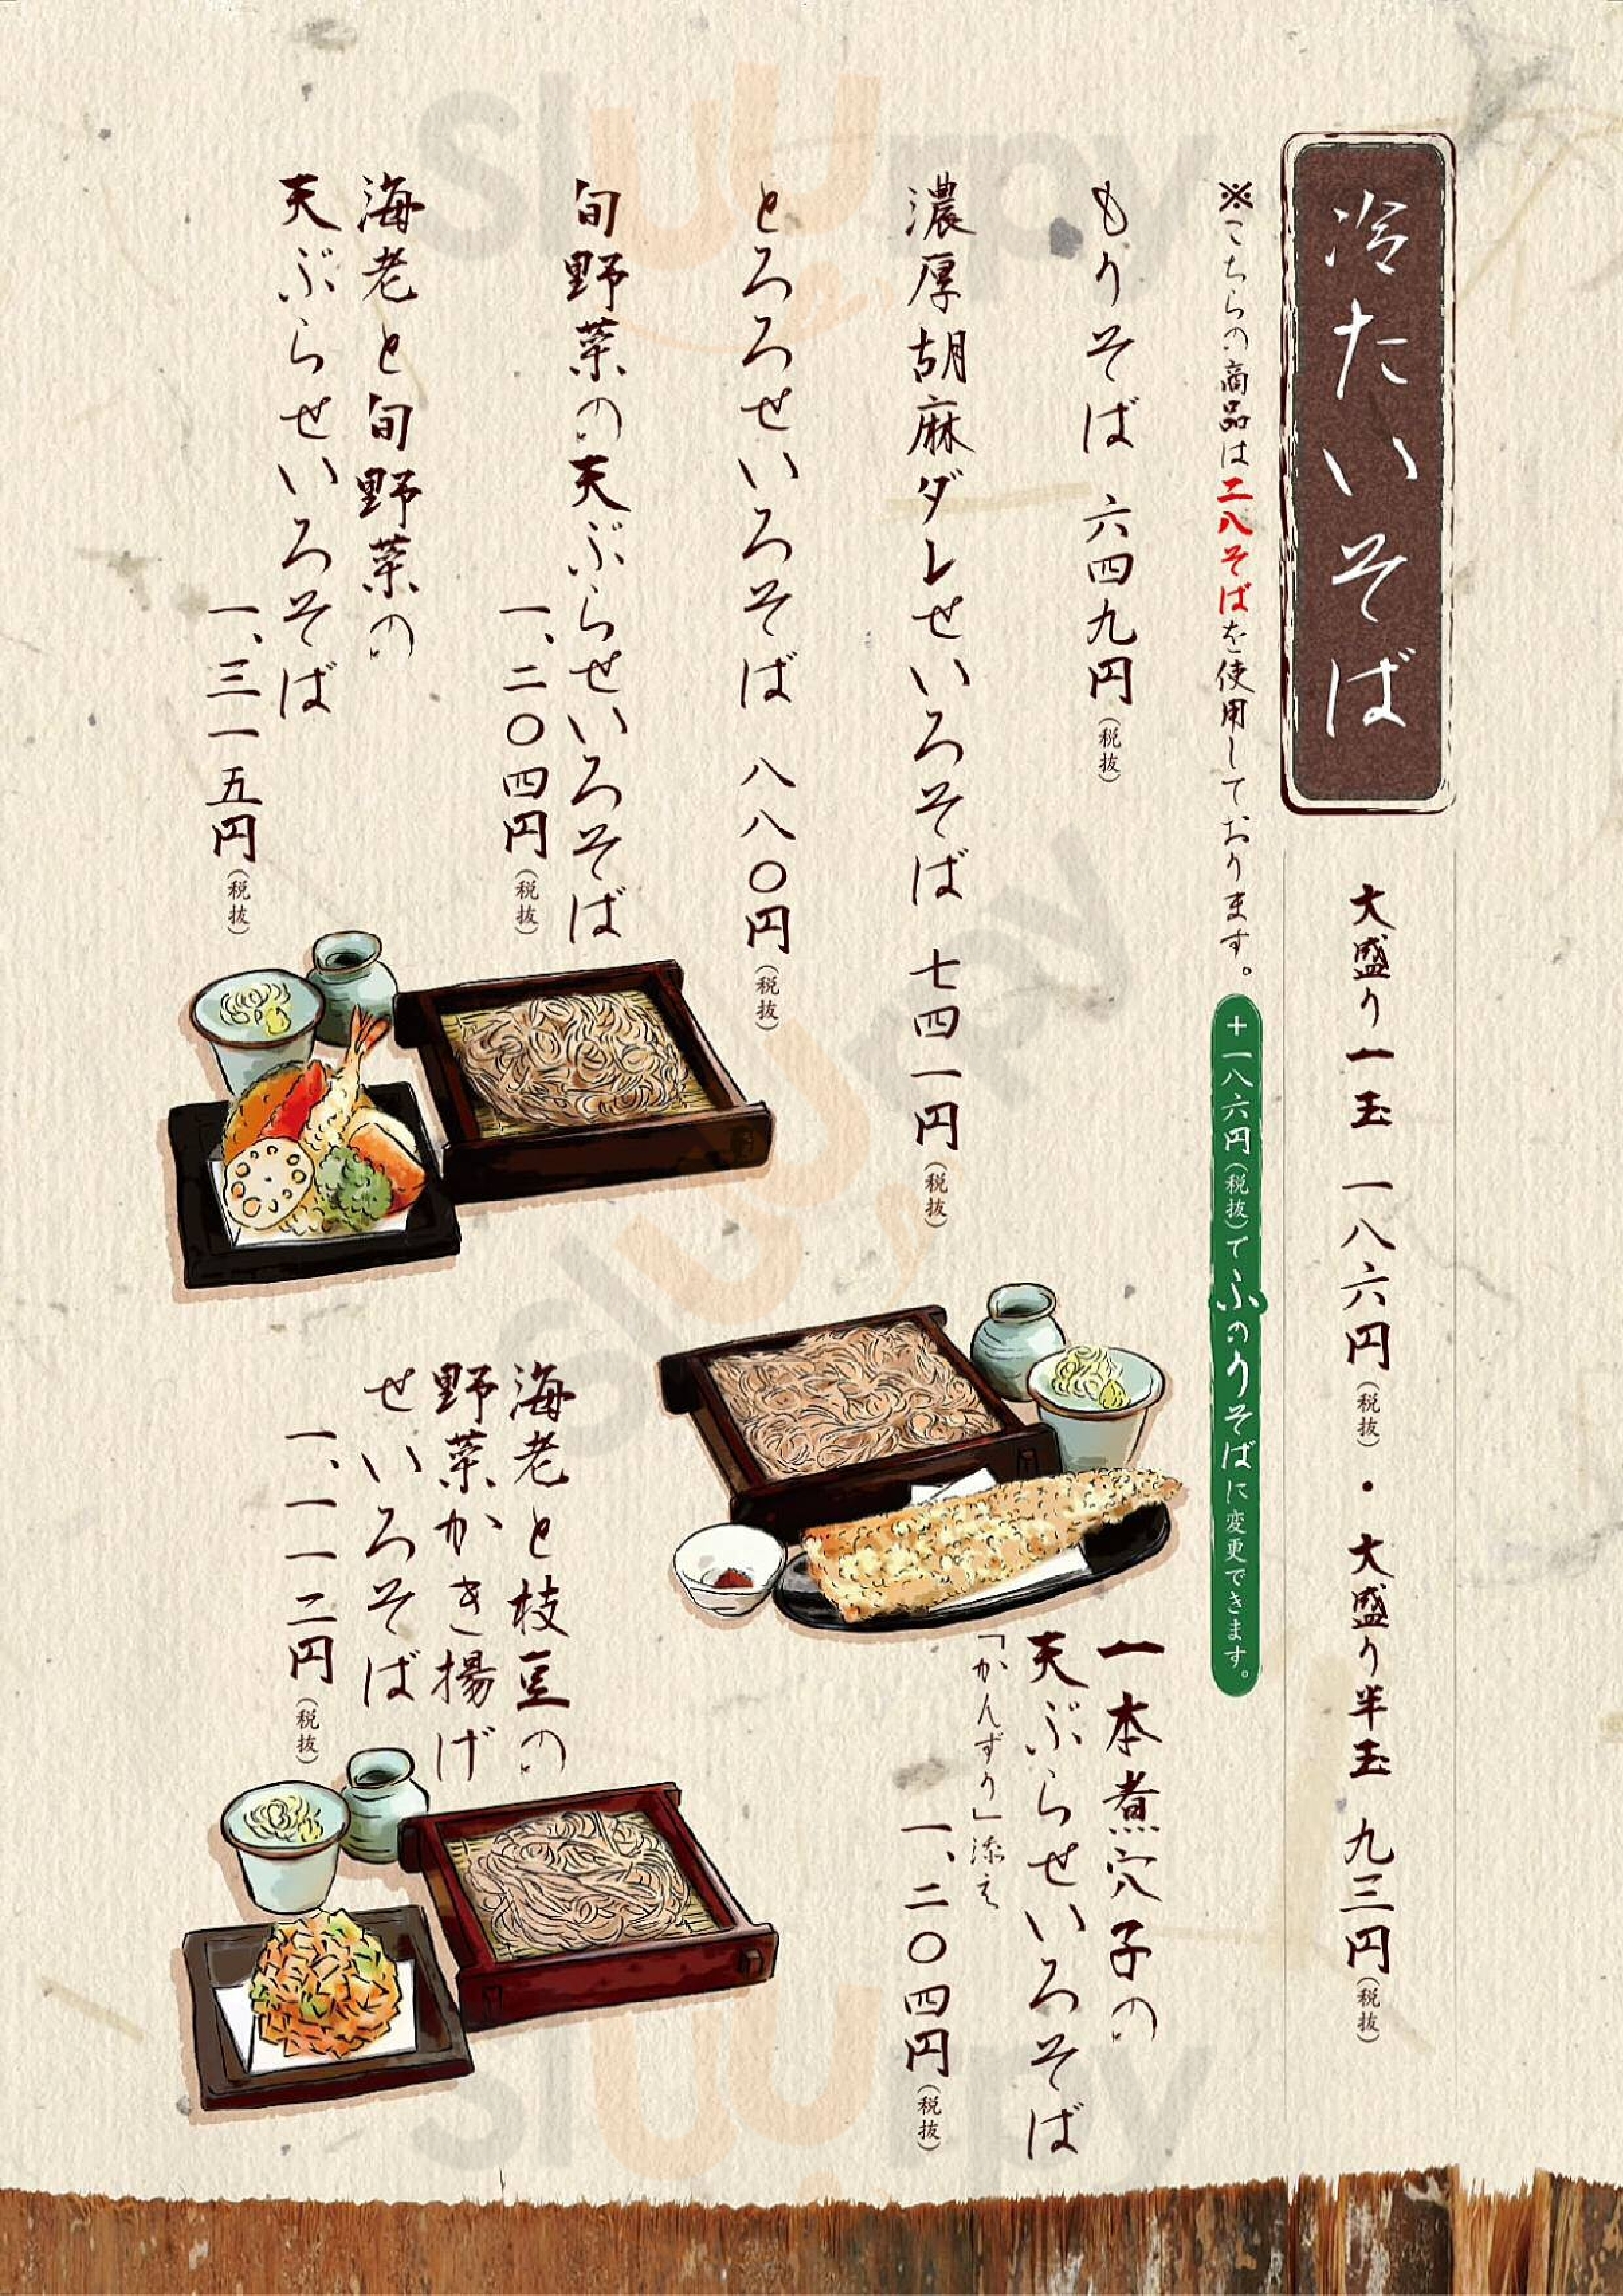 冷たいそば
大盛り一玉 一八六円(税抜)・大盛り半玉 九三円(税抜)
※こちらの商品は二八そばを使用しております。
+一八六円(税抜)でふのりそばに変更できます。
もりそば 六四九円(税抜)
濃厚胡麻ダレせいろそば 七四一円(税抜)
とろろせいろそば 八八〇円(税抜)
旬野菜の天ぷらせいろそば
一、二〇四円(税抜)
海老と旬野菜の
天ぷらせいろそば
一、三一五円(税抜)
一本煮穴子の
天ぷらせいろそば
「かんずり」添え
一、二〇四円(税抜)
海老と枝豆の
野菜かき揚げ
せいろそば
一、一一二円(税抜)
sluurpy
sluurpy
sluurpy